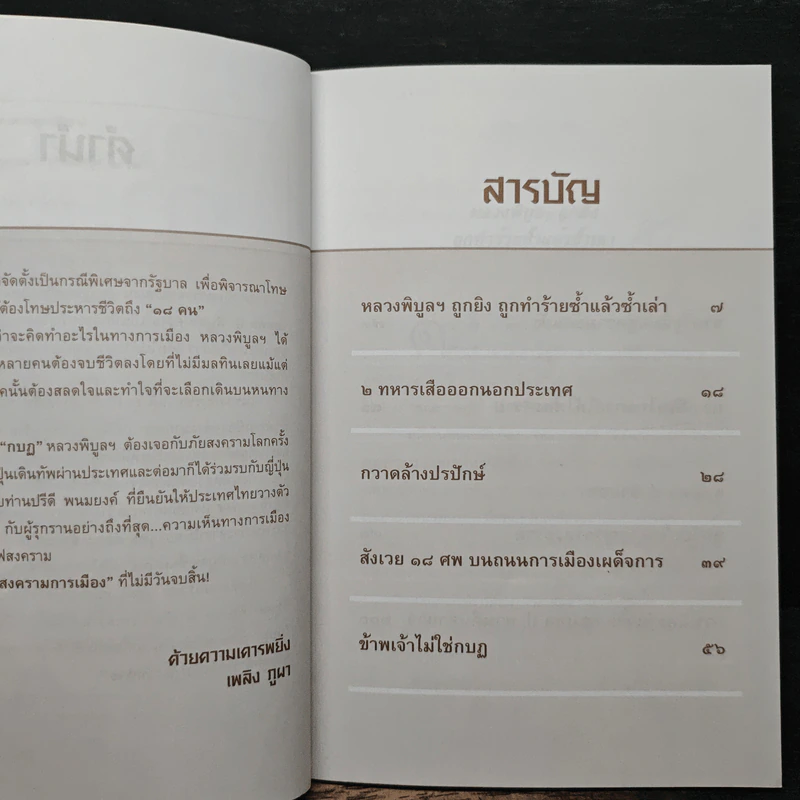 จัดตั้งเป็นกรณีพิเศษจากรัฐบาล เพื่อพิจารณาโทษ
ต้องโทษประหารชีวิตถึง “๑๘ คน”
จะคิดทำอะไรในทางการเมือง หลวงพิบูลฯ ได้
หลายคนต้องจบชีวิตลงโดยที่ไม่มีมลทินเลยแม้แต่
นั้นต้องสลดใจและทำใจที่จะเลือกเดินบนหนทาง
“กบฏ” หลวงพิบูลฯ ต้องเจอกับภัยสงครามโลกครั้ง
ปุ่นเดินทัพผ่านประเทศและต่อมาก็ได้ร่วมรบกับญี่ปุ่น
ท่านปรีดี พนมยงค์ ที่ยืนยันให้ประเทศไทยวางตัว
กับผู้รุกรานอย่างถึงที่สุด...ความเห็นทางการเมือง
สงคราม
สงครามการเมือง” ที่ไม่มีวันจบสิ้น!
ด้วยความเคารพยิ่ง
เพลิง ภูผา
สารบัญ
หลวงพิบูลฯ ถูกยิง ถูกทำร้ายซ้ำแล้วซ้ำเล่า ๗
๒ ทหารเสือออกนอกประเทศ ๑๘
กวาดล้างปรปักษ์ ๒๘
สังเวย ๑๘ ศพ บนถนนการเมืองเผด็จการ ๓๙
ข้าพเจ้าไม่ใช่กบฏ ๕๖